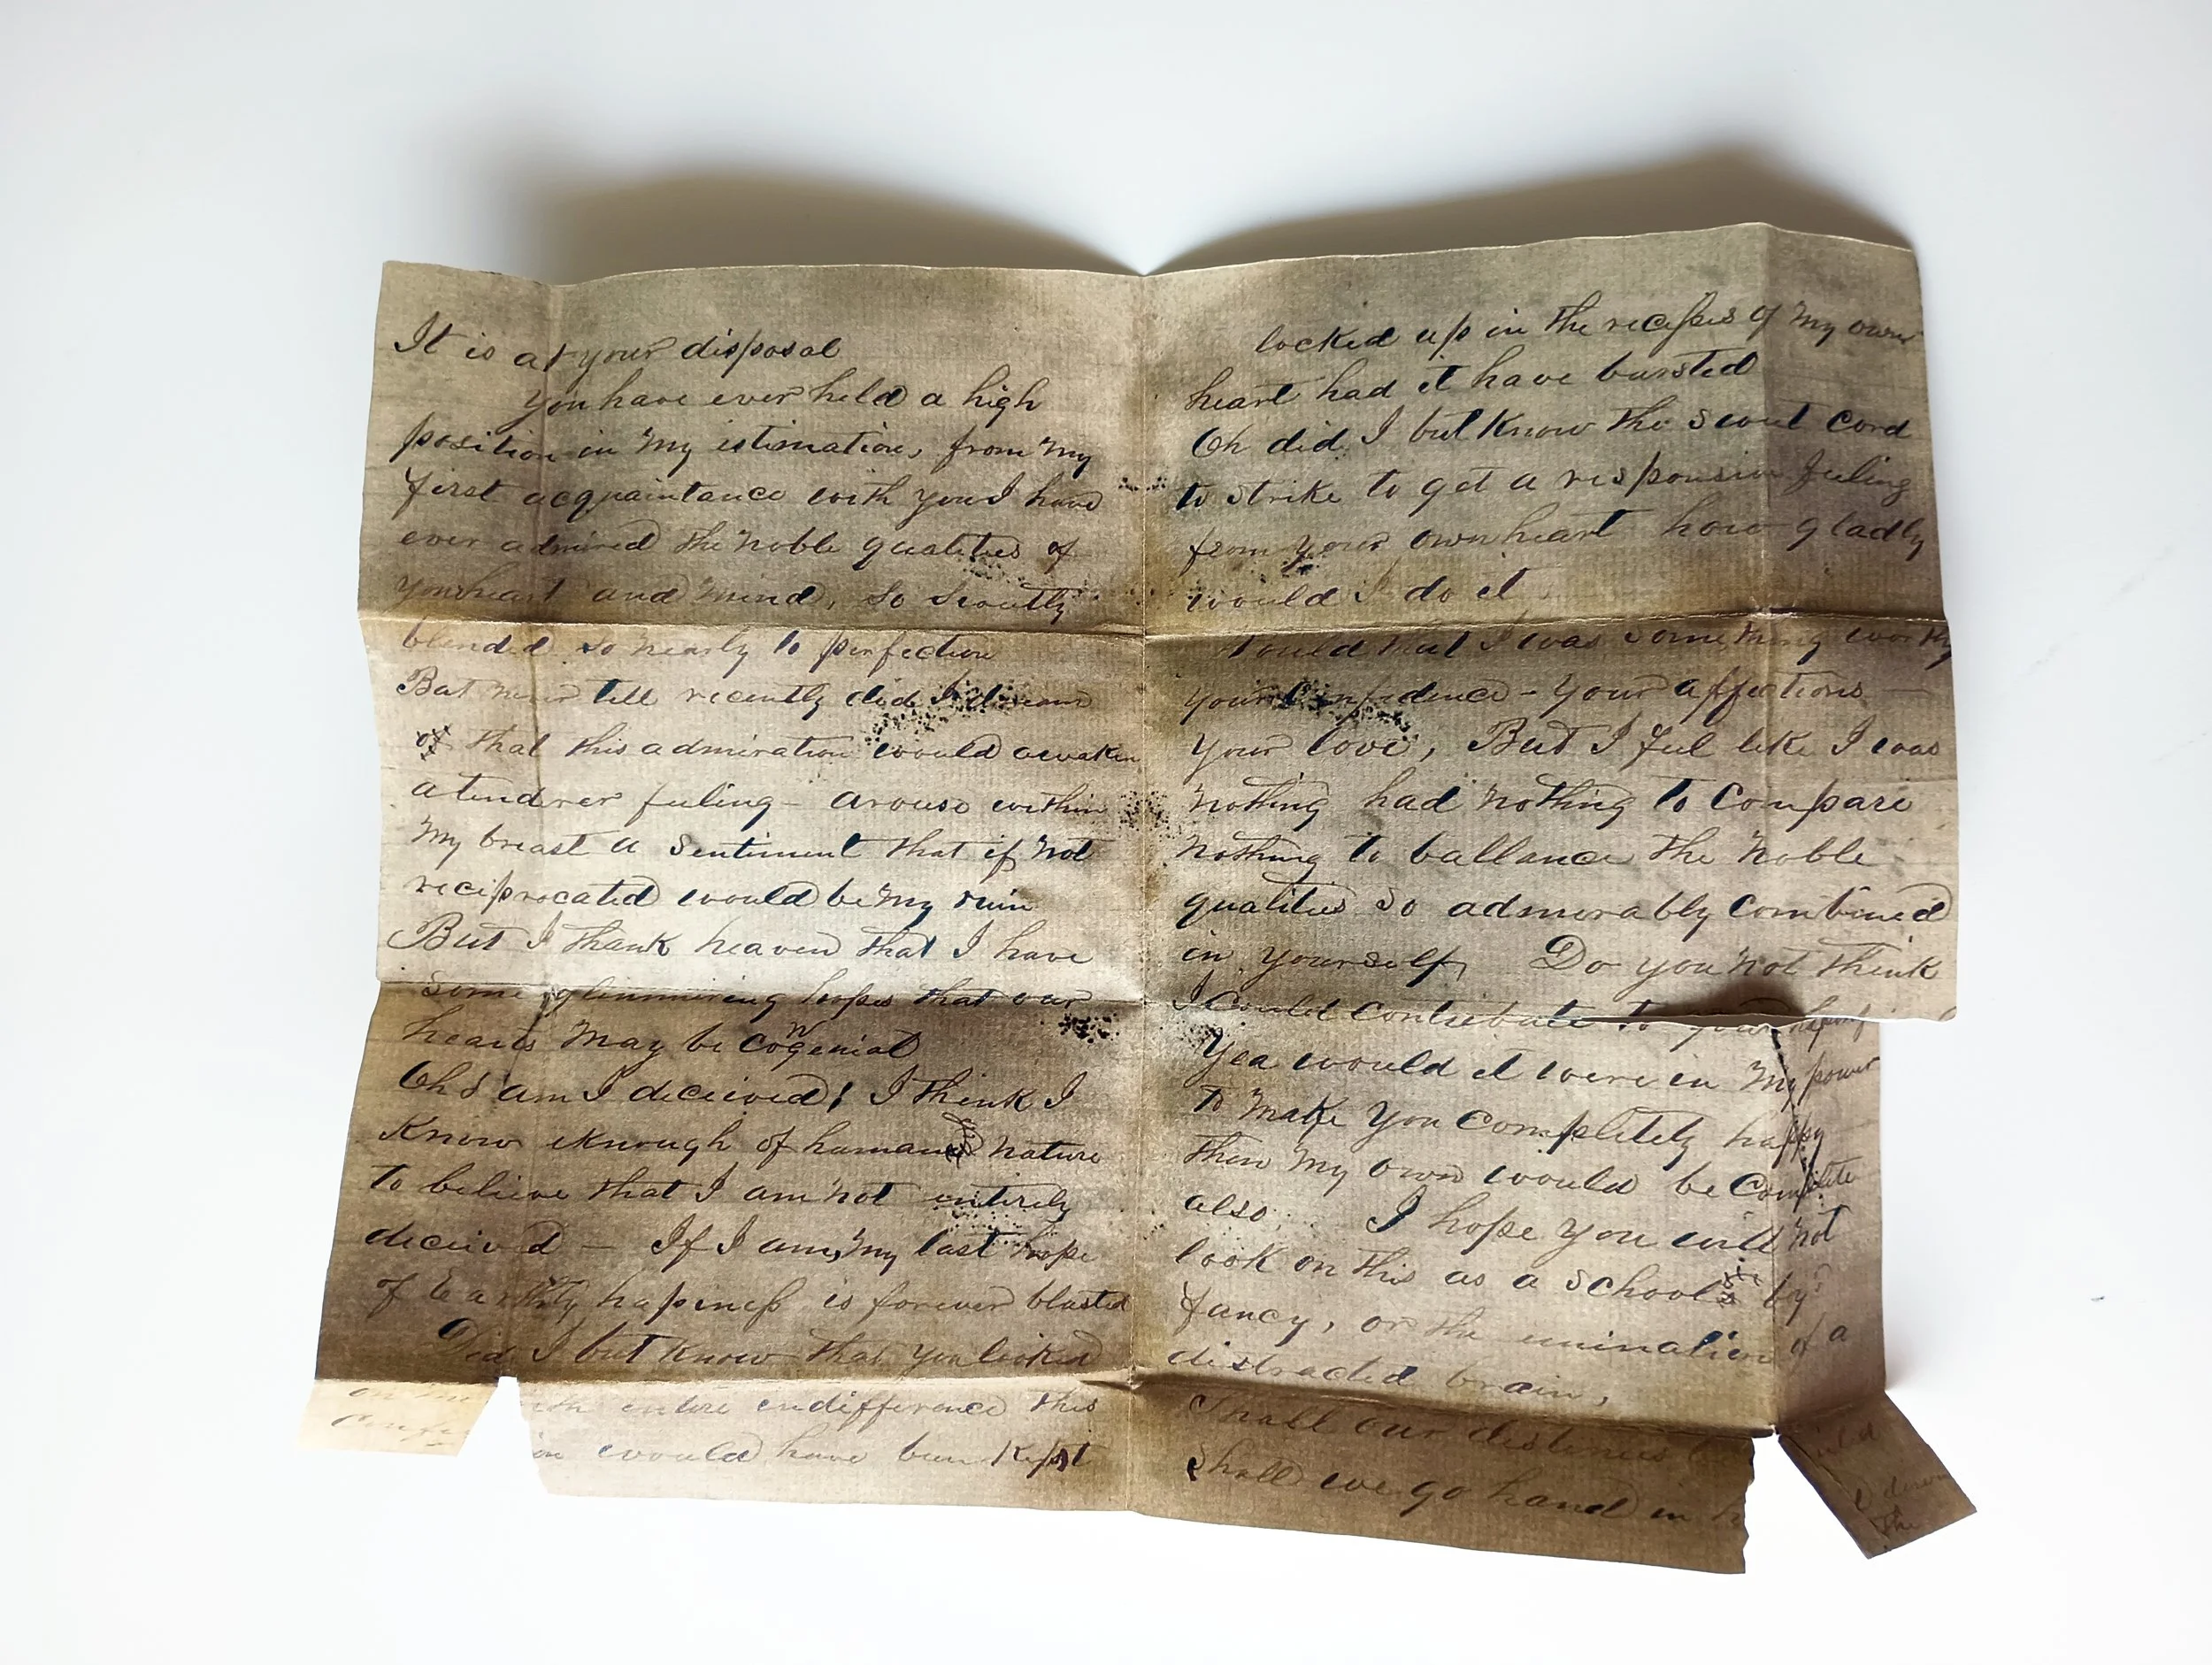 It is at your disposal
You have ever held a high
position in my estimation, from my
first acquaintance with you I have
ever admired the noble qualities of
your heart and mind, so sweetly
blended so nearly to perfection
But never till recently did I dream
that this admiration would awaken
a tenderer feeling - arouse within
my breast a sentiment that if not
reciprocated would be my ruin
But I thank heaven that I have
some glimmering hopes that our
hearts may be congenial
Oh! am I deceived! I think I
know eknough of human nature
to believe that I am not entirely
deceived - If I am, my last hope
of Earthly hapiness is forever blasted
Did I but know that you looked
on me with entire indifference this
would have been kept
locked up in the recesses of my own
heart had it have bursted
Oh did I but know the sweet cord
to strike to get a responsive feeling
from your own heart how gladly
would I do it
Would that I was something worthy
your confidence - your affections -
your love, But I feel like I was
nothing had nothing to compare
nothing to ballance the noble
qualities so admirably combined
in yourself, Do you not think
I could contribute to your
Yea would it were in my power
to make you completely happy
then my own would be complete
also. I hope you will not
look on this as a school by's
fancy, or the of a
distracted brain,
Shall our destinies
Shall we go hand in
the